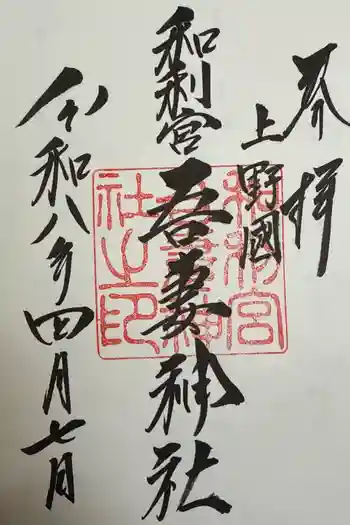 奉拝
上野國
和利宮
吾妻神社
令和八年四月七日
和利宮吾妻神社之印